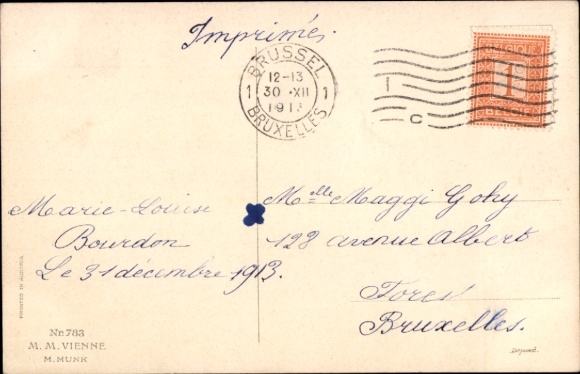 Imprimés.
BRUSSEL
12-13
30 XII
1 1
191
BRUXELLES
1
C
1c
BELGIË
Marie-Louise
Bourdon
Le 31 décembre 1913.
Mlle Maggi Gohy
128 avenue Albert
Forest
Bruxelles.
PRINTED IN AUSTRIA
Nr. 783
M. M. VIENNE
M. MUNK
Déposé.